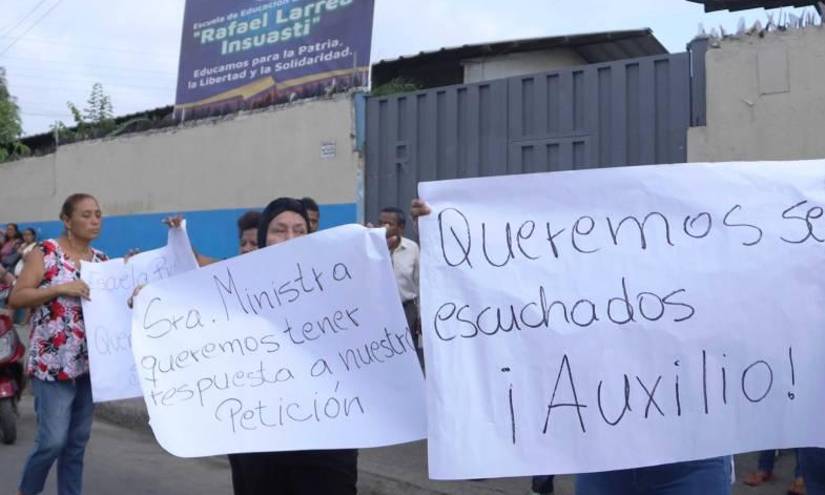 Escuela de Educación
"Rafael Larrea
Insuasti"
Educamos para la Patria,
la Libertad y la Solidaridad.
Sra. Ministra
queremos tener
respuesta a nuestra
Petición
Queremos se
escuchados
¡Auxilio!